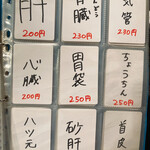 肝
200円
腎臓
どう
230円
気管
230円
心臓
200円
胃袋
230円
ちょうちん
250円
ハツ元
砂肝
首皮